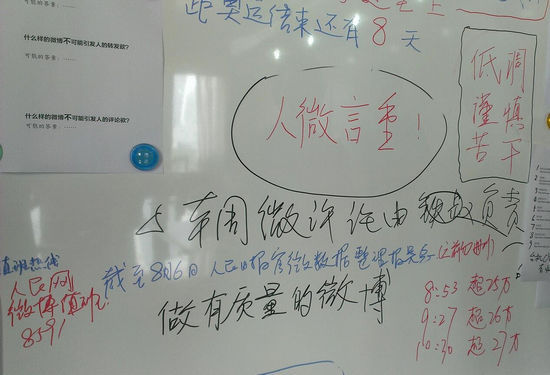 距奥运结束还有8天
可能的答案：……
什么样的微博不可能引发人的转发欲？
可能的答案：……
什么样的微博不可能引发人的评论欲？
可能的答案：……
人微言重！
低调
谨慎
苦干
本周微评论由
负责
截至8月6日 人民日报官微数据整理报吴会
做有质量的微博
值班热线
人民网
微博值班
8591
8:53 超25万
9:27 超26万
10:30 超27万